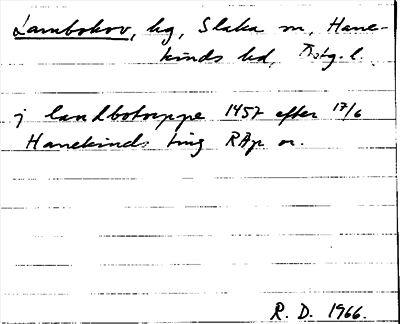 Lambohov, hg, Slaka sn, Hane-
kinds hd, Östg. l.
j landbotorppe 1457 efter 17/6
Hanekinds ting RAp or.
R. D. 1966.